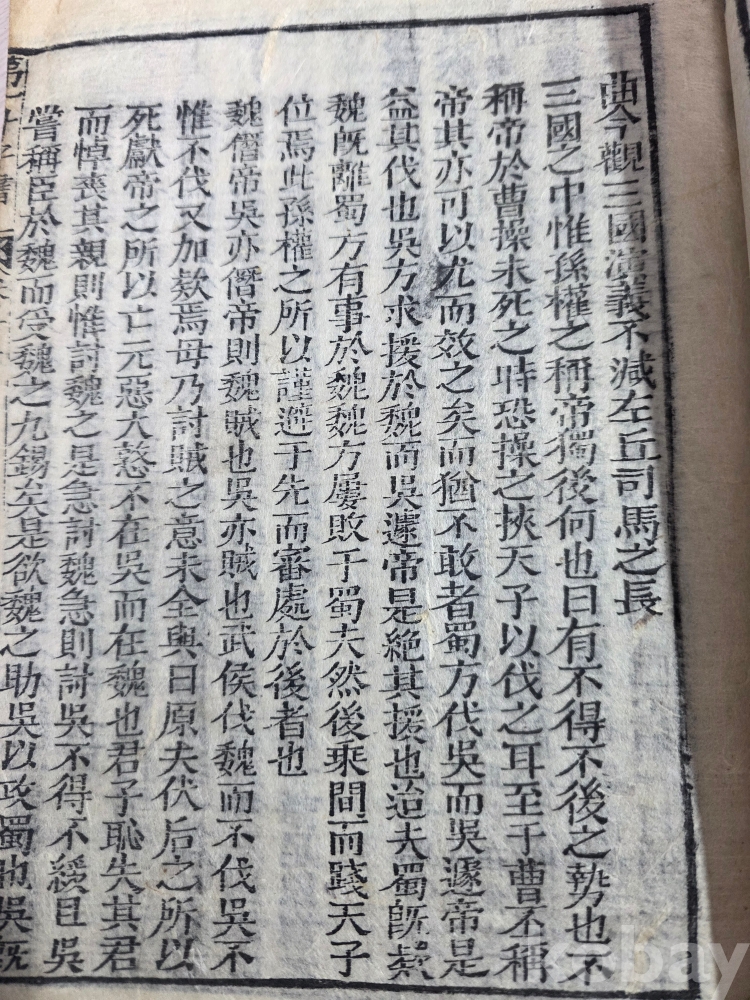 曲今觀三國演義不減左丘司馬之長
三國之中惟孫權之稱帝獨後何也曰有不得不後之勢也不
稱帝於曹操未死之時恐操之挾天子以伐之耳至于曹丕稱
帝其亦可以尤而效之矣而猶不敢者蜀方伐吳而吳遽帝是
益其伐也吳方求援於魏而吳遽帝是絶其援也迨夫蜀旣欵
魏旣離蜀方有事於魏魏方屢敗于蜀夫然後乘間而踐天子
位焉此孫權之所以謹避于先而審處於後者也
魏僭帝吳亦僭帝則魏賊也吳亦賊也武侯伐魏而不伐吳不
惟不伐又加欵焉毋乃討賊之意未全與曰原夫伏后之所以
死獻帝之所以亡元惡大憝不在吳而在魏也君子恥失其君
而悼喪其親則惟討魏之是急討魏急則討吳不得不緩且吳
嘗稱臣於魏而受魏之九錫矣是欲魏之助吳以攻蜀也吳旣
第一才子書
bay